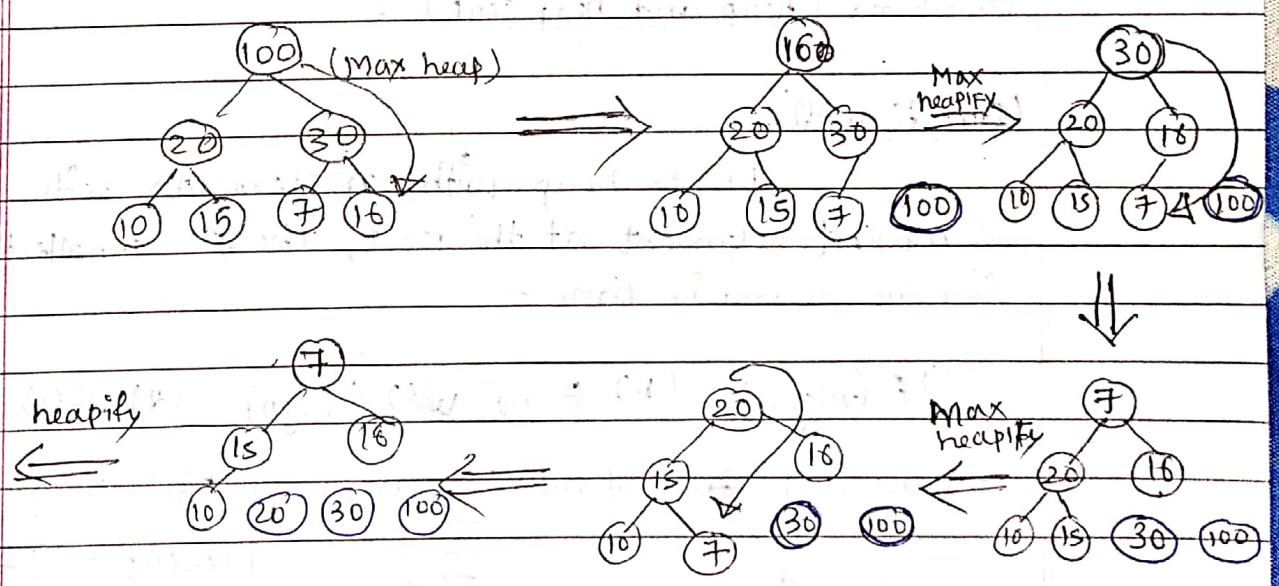 100 (Max heap)
20 30
10 15 7 16
160
20 30
10 15 7 100
Max
heapify
30
20 16
10 15 7 100
7
20 16
10 15 30 100
Max
heapify
20
15 16
10 7 30 100
7
15 16
10 20 30 100
heapify